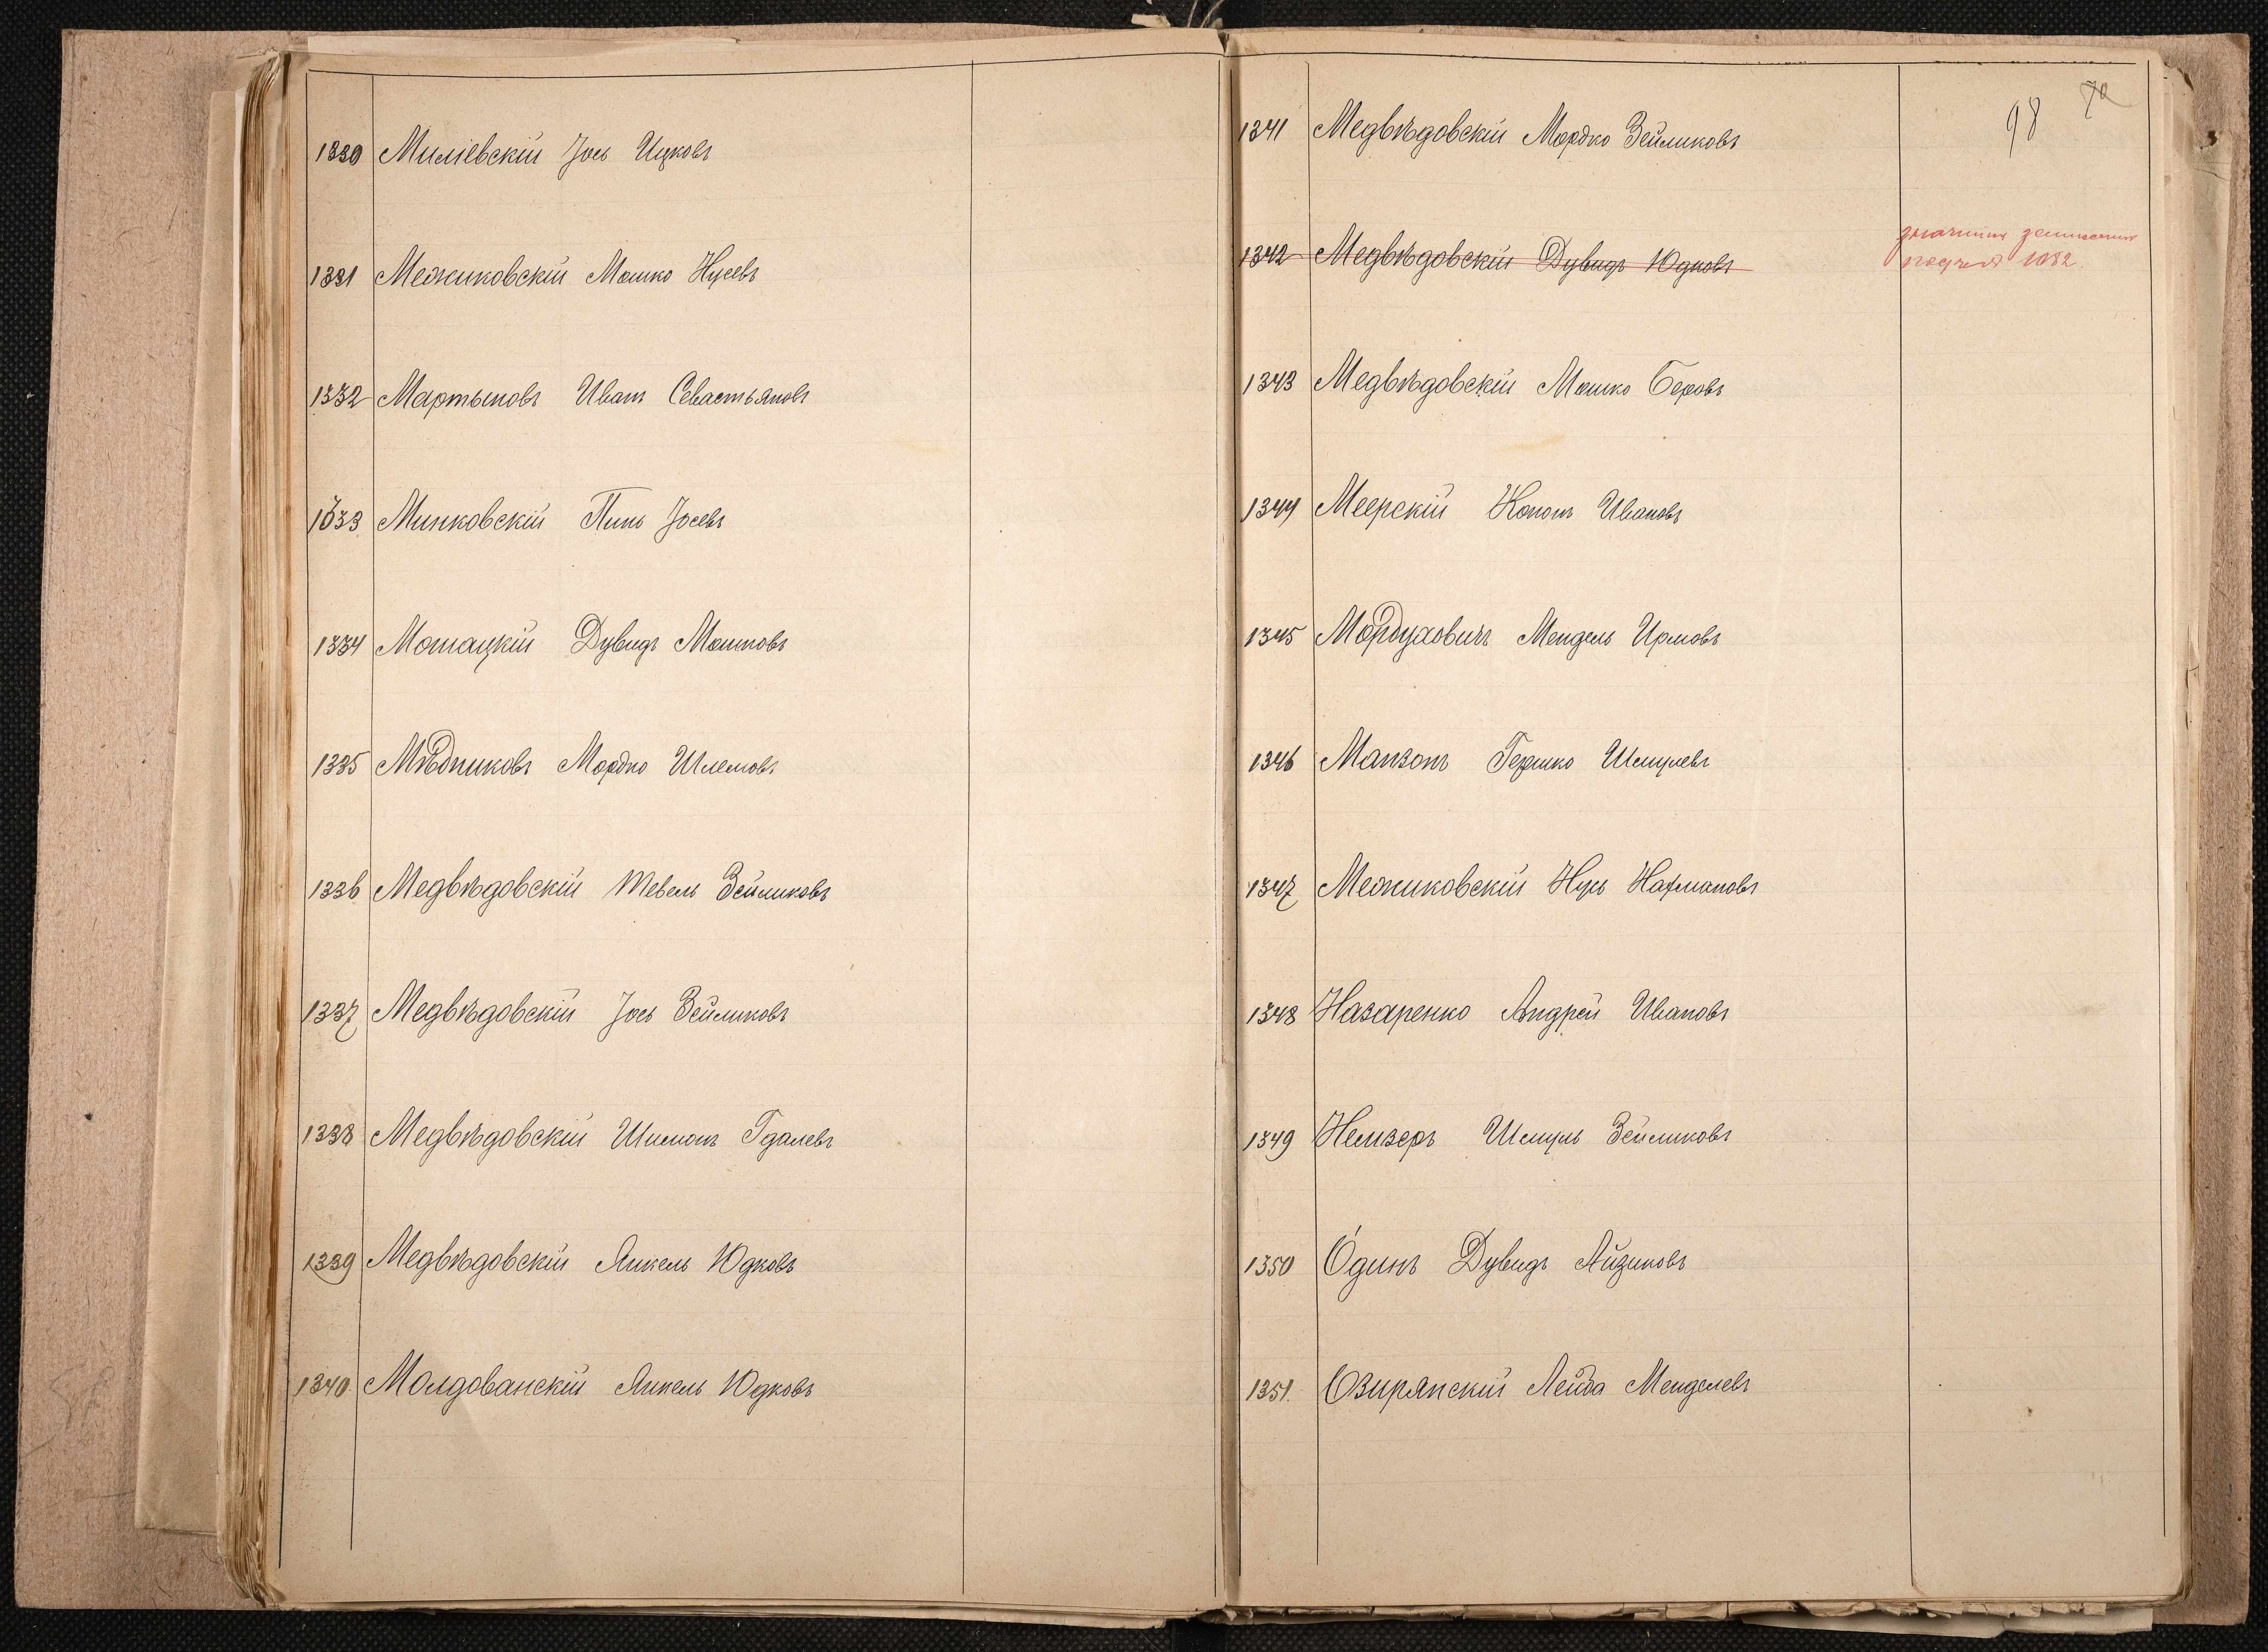 1330 Миліевскій Іось Ицковъ
1331 Межиковскій Мошко Нусевъ
1332 Мартыновъ Иванъ Севастьяновъ
1333 Минковскій Пинь Іосевъ
1334 Мотацкій Дувидъ Мошковъ
1335 Мѣдниковъ Мордко Шлемовъ
1336 Медвѣдовскій Тевель Зейликовъ
1337 Медвѣдовскій Іось Зейликовъ
1338 Медвѣдовскій Шимонъ Гдалевъ
1339 Медвѣдовскій Янкель Юдковъ
1340 Молдованскій Янкель Юдковъ
98 70
1341 Медвѣдовскій Мордко Зейликовъ
1342 Медвѣдовскій Дувидъ Юдковъ
1082
1343 Медвѣдовскій Мошко Беровъ
1344 Меерскій Кононъ Ивановъ
1345 Мордуховичъ Мендель Ирмовъ
1346 Манзонъ Гершко Шмулевъ
1347 Межиковскій Нусь Нахмановъ
1348 Назаренко Андрей Ивановъ
1349 Немзеръ Шмуль Зейликовъ
1350 Одинъ Дувидъ Айзиковъ
1351 Озирянскій Лейба Менделевъ